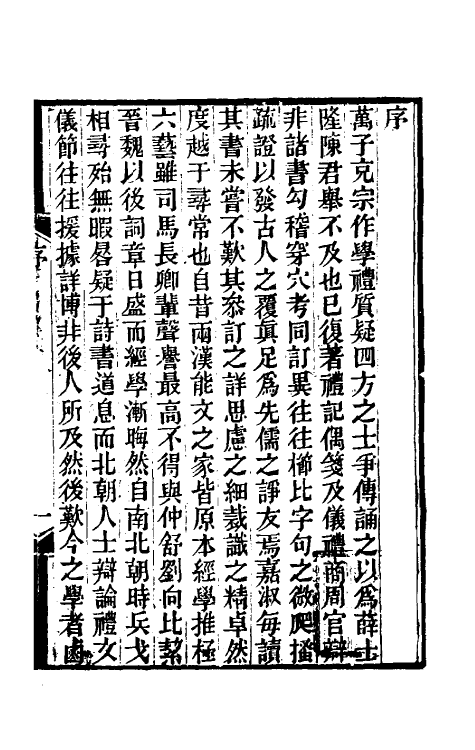 序
萬子充宗作學禮質疑四方之士爭傳誦之以爲薛士
隆陳君舉不及也已復著禮記偶箋及儀禮商周官辯
非諸書勾稽穿穴考同訂異往往櫛比字句之微爬搔
疏證以發古人之覆眞足爲先儒之諍友焉嘉淑每讀
其書未嘗不歎其叅訂之詳思慮之細裁識之精卓然
度越于尋常也自昔兩漢能文之家皆原本經學推極
六藝雖司馬長卿輩聲譽最高不得與仲舒劉向比絜
晉魏以後詞章日盛而經學漸晦然自南北朝時兵戈
相尋殆無暇晷疑于詩書道息而北朝人士辯論禮文
儀節往往援據詳博非後人所及然後歎今之學者鹵
序
一